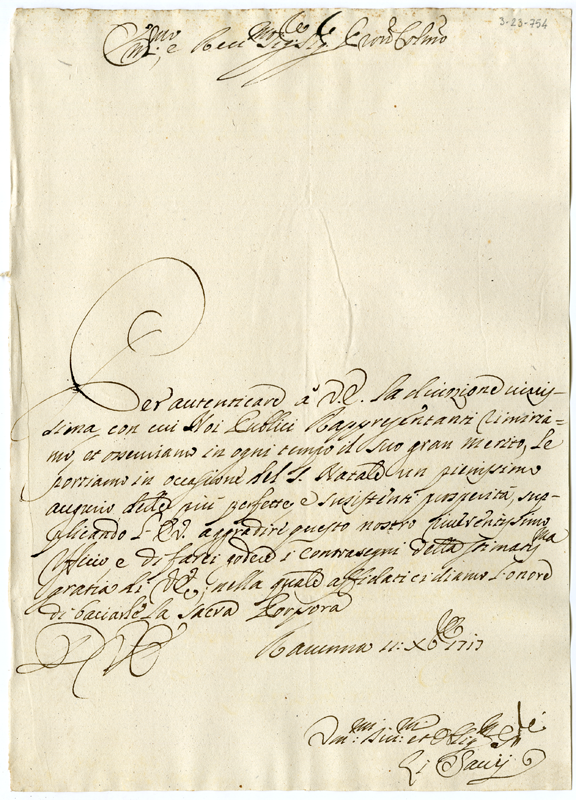 3-23-754
Em.mo e Rev.mo Sig.r Sig.r P̄ron Col.mo
Per autenticare à V.E. la divozione vivis-
sima, con cui Noi Publici Rappresentanti rimiria-
mo, et osserviamo in ogni tempo il suo gran merito, Le
portiamo in occasione del S. Natale un pienissimo
augurio delle più perfette, e sussistenti prosperità, sup-
plicando l'E.V. aggradire questo nostro riverentissimo
Ufficio e di farci godere i contrasegni della stimatis.ma
gratia di V.E., nella quale affidati ci diamo l'onore
di baciarle la Sacra Porpora
D V E
Ravenna 11: Xbre 1717
Dev.mi et Oblig.mi
Li Savij